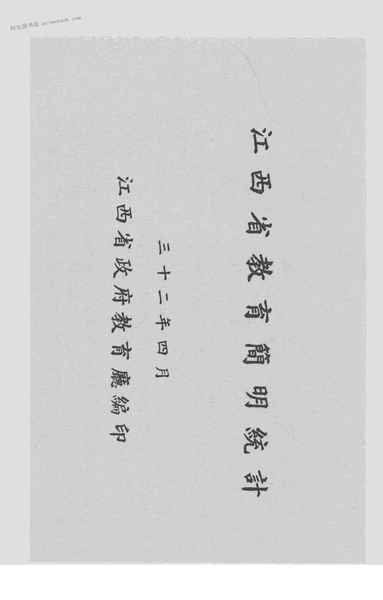 江西省教育簡明統計
三十二年四月
江西省政府教育廳編印